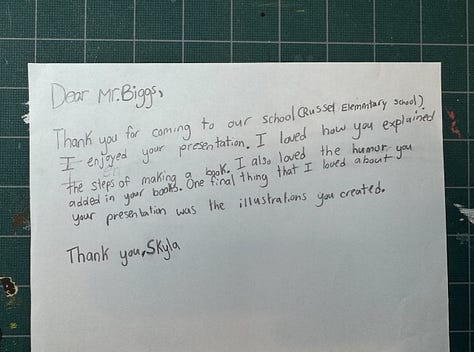 Dear Mr. Biggs,
Thank you for coming to our school (Russel Elementary School).
I enjoyed your presentation. I loved how you explained
the steps of making a book. I also loved the humor you
added in your books. One final thing that I loved about
your presentation was the illustrations you created.
Thank you, Skyla